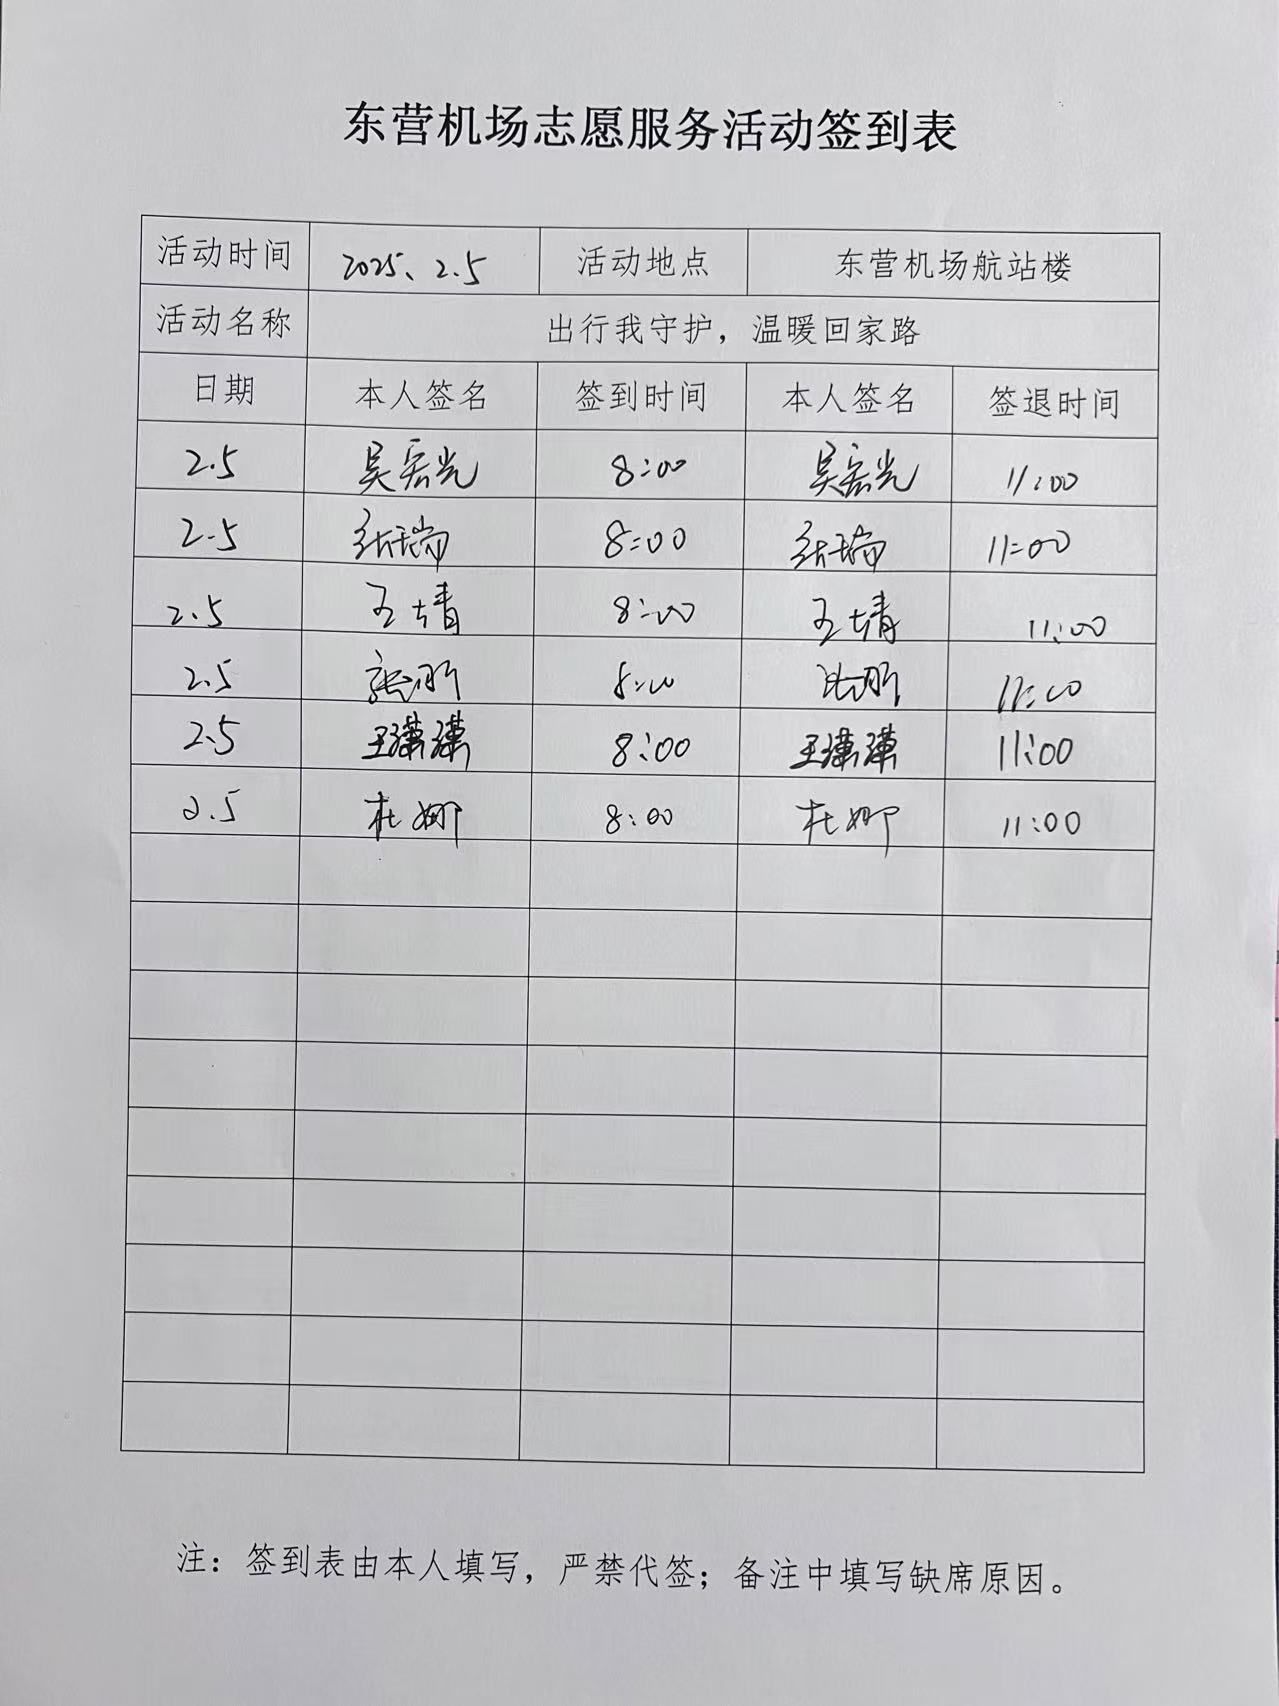 东营机场志愿服务活动签到表
活动时间 2025、2.5 活动地点 东营机场航站楼
活动名称 出行我守护，温暖回家路
日期 本人签名 签到时间 本人签名 签退时间
2.5 吴宏光 8:00 吴宏光 11:00
2.5 张瑞 8:00 张瑞 11:00
2.5 王婧 8:00 王婧 11:00
2.5 8:00 11:00
2.5 王潇潇 8:00 王潇潇 11:00
2.5 杜娜 8:00 杜娜 11:00
注：签到表由本人填写，严禁代签；备注中填写缺席原因。